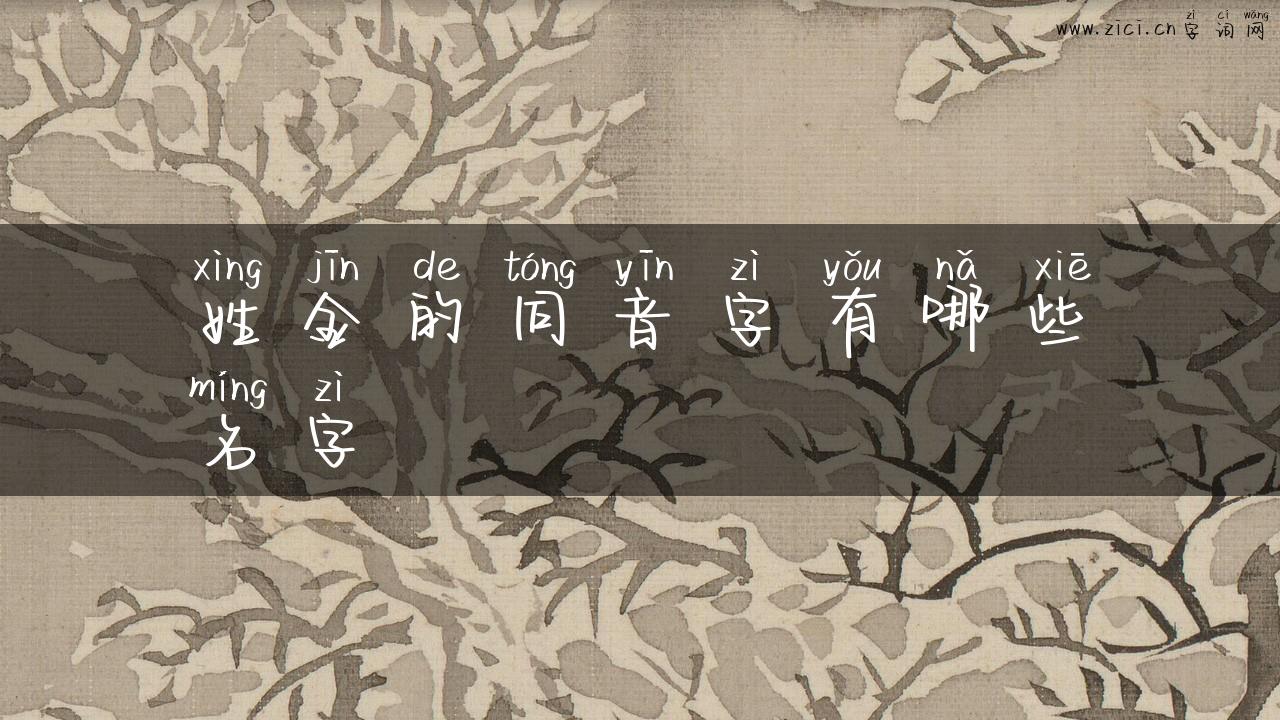 zì cí wǎng
www.zici.cn字词网
xìng jīn de tóng yīn zì yǒu nǎ xiē
姓金的同音字有哪些
míng zì
名字